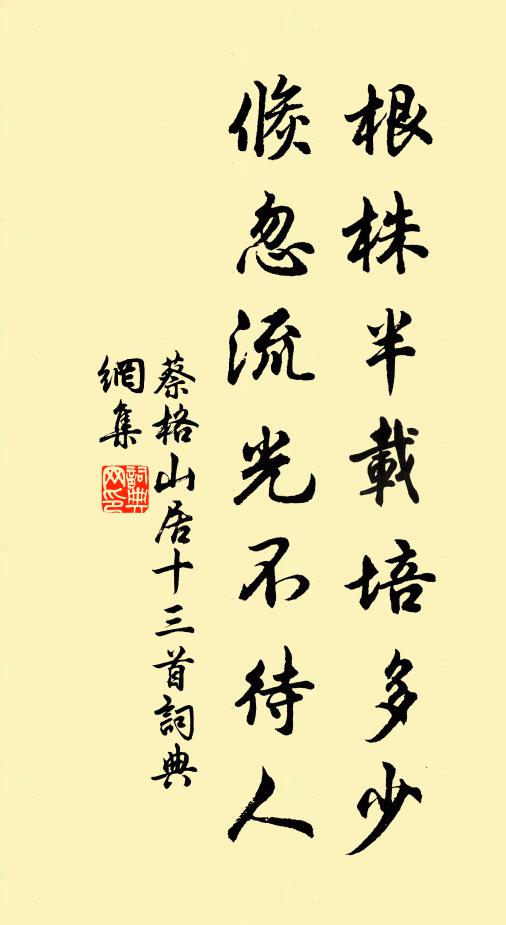 根株半載培多少
倏忽流光不待人
蔡格山居十三首詞典
網集
詞典網印